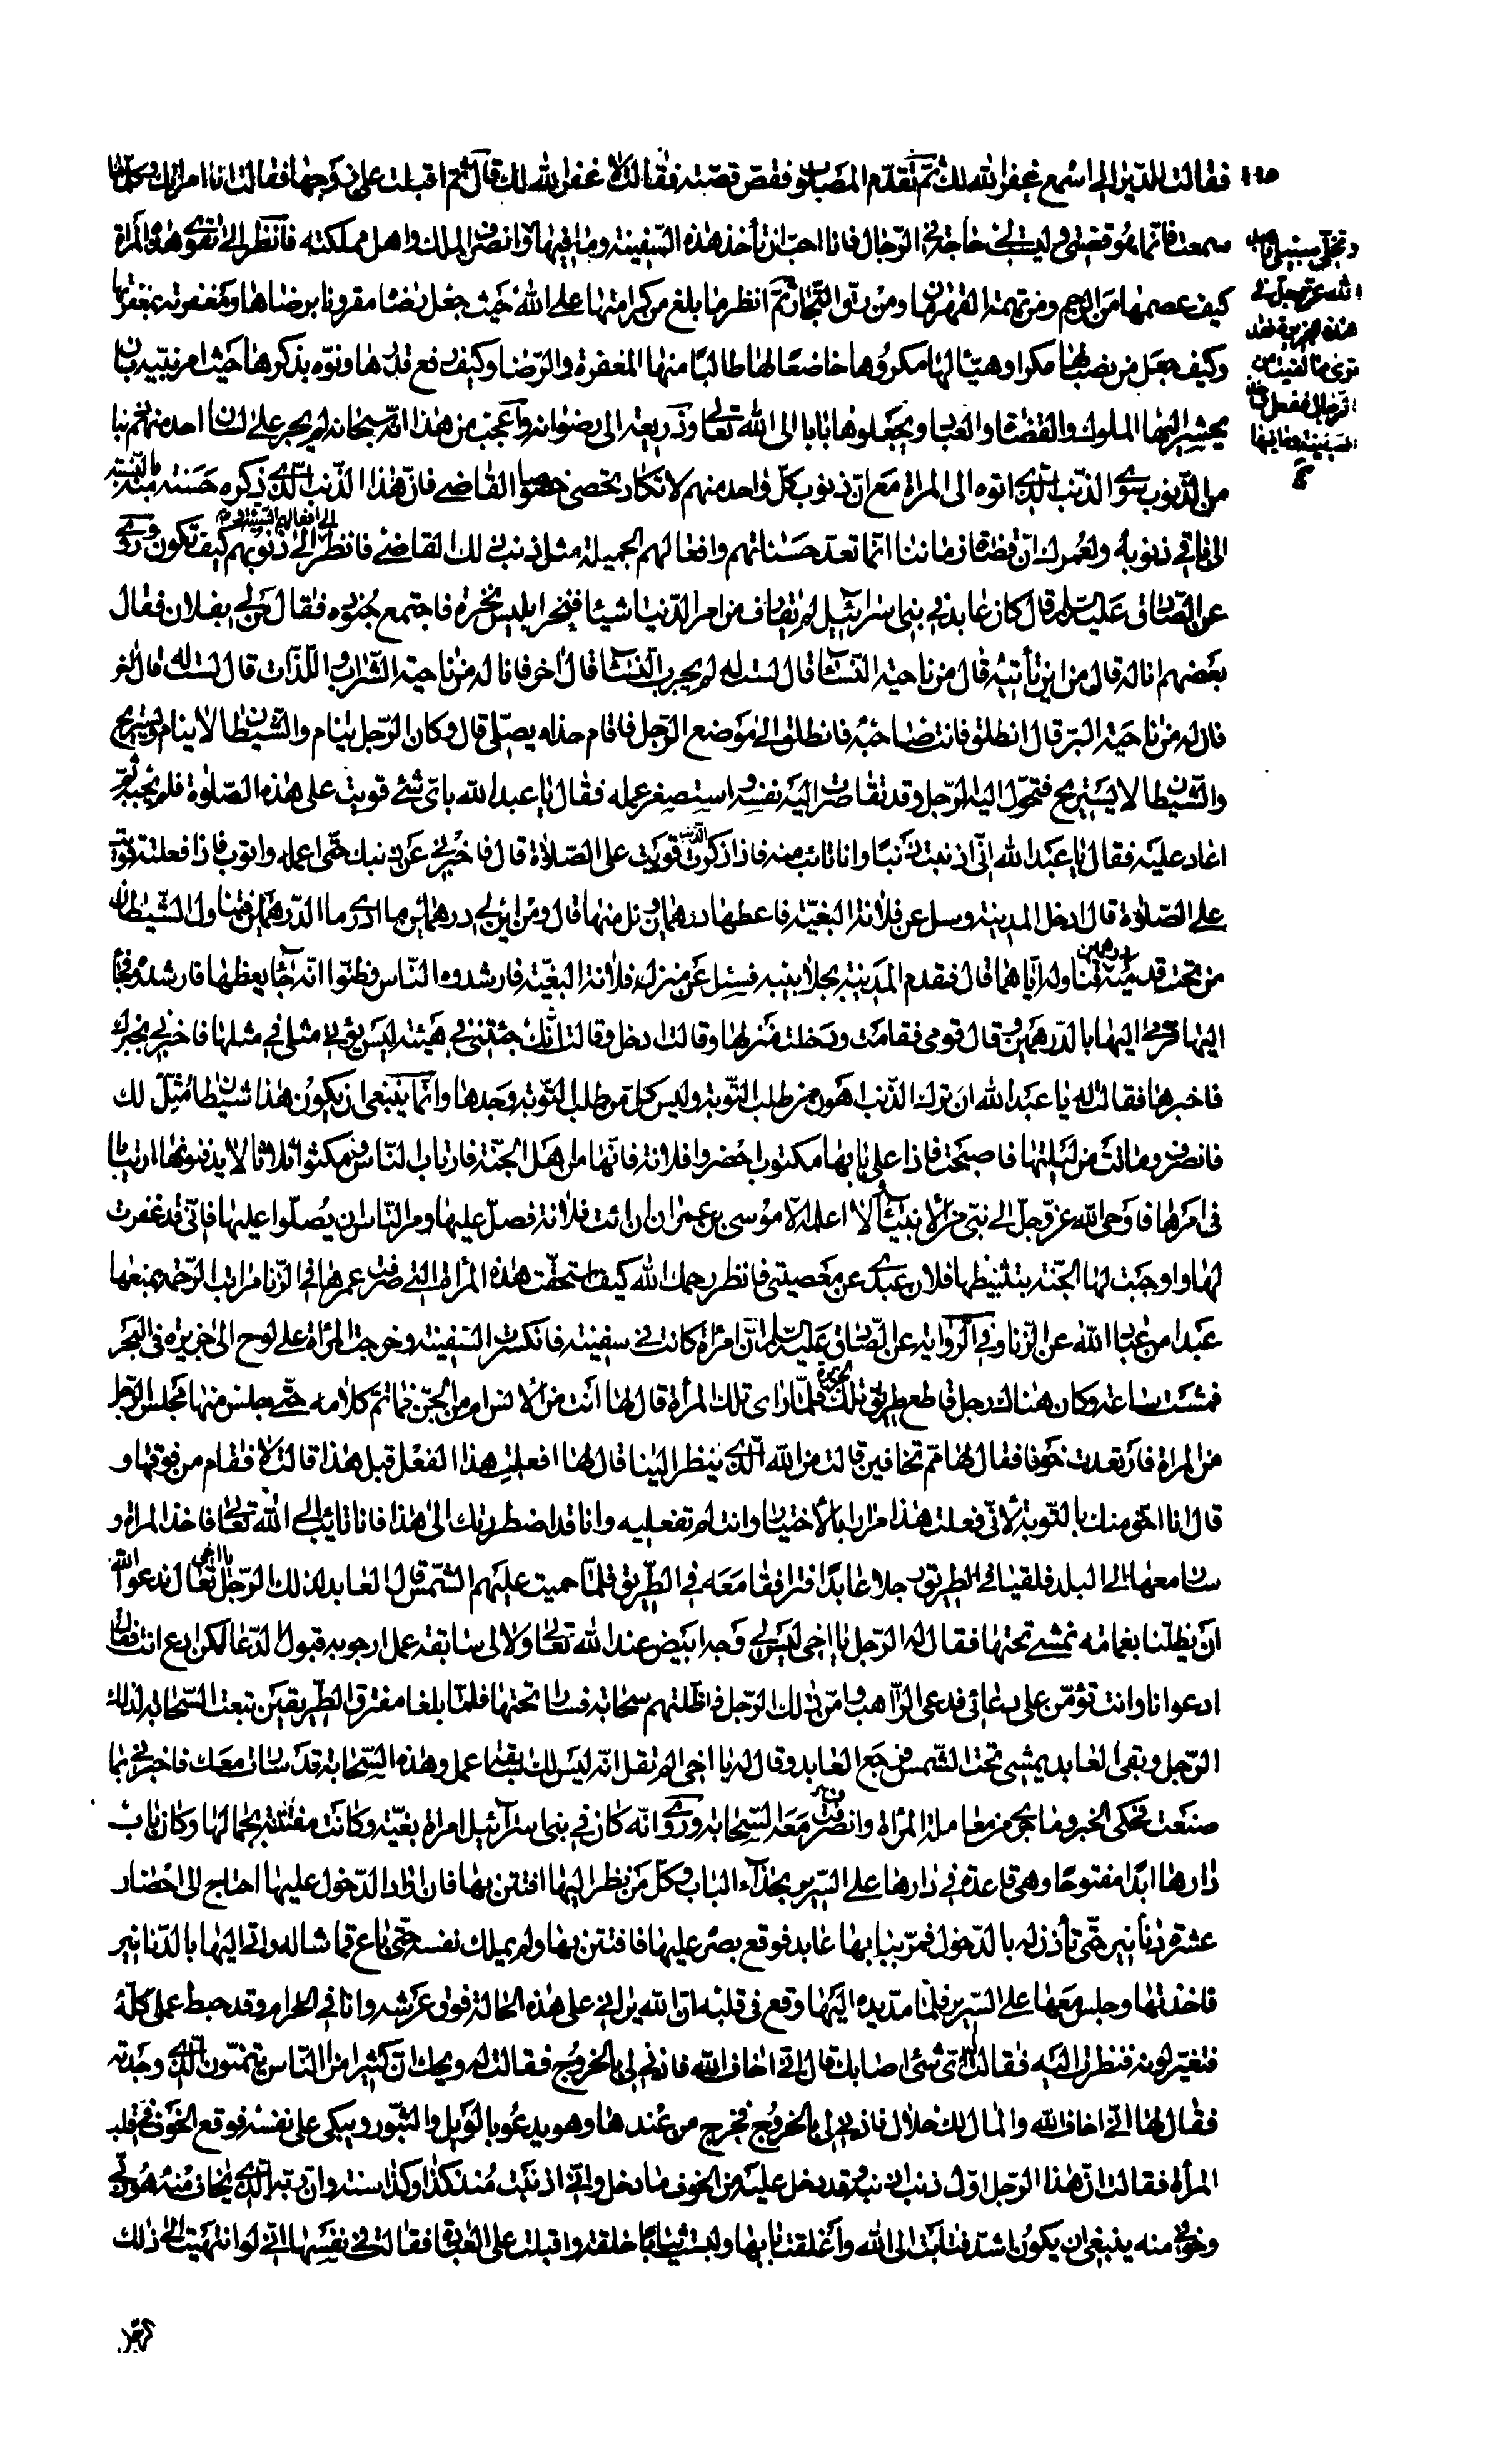 ١١٥ فقالت للديراني اسمع غفر الله لك ثم تقدم المصلوب فقص قصته فقالت لا غفر الله لك قال ثم اقبلت على زوجها فقالت انا امراتك وكل ما
سمعت فانما هو قصتي وليست لي حاجة في الرجال فانا احب ان تأخذ هذه السفينة وما فيها وانصرف الملك واهل مملكته فانظر الى تقوى هذه المراة
كيف عصمها من الرجم ومن تهمة القهرمان ومن رق التجار ثم انظر ما بلغ من كرامتها على الله حيث جعل رضاه مقرونا برضاها ومغفرته بمغفرتها
وكيف جعل من نصب لها مكرا وهيّأ لها مكروها خاضعا لها طالبا منها المغفرة والرضا وكيف رفع قدرها ونوه بذكرها حيث امر نبيه بان
يحشر اليها الملوك والقضاة والعباد ويجعلوها بابا الى الله تعالى وذريعة الى رضوانه واعجب من هذا انه سبحانه لم يجر على لسان احد منهم ذنبا
من الذنوب سوى الذنب الذي اتوه الى المراة مع ان ذنوب كل واحد منهم لا تكاد تحصى خصوصا القاضي فان هذا الذنب الذي ذكره حسنة منه بالنسبة
الى باقي ذنوبه ولعمرك ان قضاة زماننا انما تعد حسناتهم وافعالهم الجميلة مثل ذنب ذلك القاضي فانظر الى ذنوبهم كيف تكون وروي
عن الصادق عليه السلم قال كان عابد في بني اسرائيل لم يقارف من امر الدنيا شيئا فنخر ابليس نخرة فاجتمع جنوده فقال من لي بفلان فقال
بعضهم انا له قال من اين تأتيه قال من ناحية النساء قال لست له لم يجرب النساء قال آخر فانا له من ناحية الشراب واللذات قال لست له قال آخر
فانا له من ناحية البر قال انطلق فانت صاحبه فانطلق الى موضع الرجل فاقام حذاه يصلي قال وكان الرجل ينام والشيطان لا ينام ويستريح
والشيطان لا يستريح فتحول اليه الرجل وقد تقاصرت اليه نفسه واستصغر عمله فقال يا عبد الله باي شيء قويت على هذه الصلوة فلم يجبه ثم
اعاد عليه فقال يا عبد الله اني اذنبت ذنبا وانا تائب منه فاذا ذكرت الذنب قويت على الصلاة قال فاخبرني عن ذنبك حتى اعمله واتوب فاذا فعلته قويت
على الصلاوة قال ادخل المدينة وسل عن فلانة البغيّة فاعطها درهمين ونل منها قال ومن اين لي درهمين ما ادري ما الدرهمين فتناول الشيطان
من تحت قدميه درهمين فناوله اياهما قال فقدم المدينة بجلابيبه فسئل عن منزله فلانة البغيّة فارشدوه الناس فظنوا انه جاء يعظها فارشدوه فجاء
اليها فرمى اليها بالدرهمين وقال قومي فقامت ودخلت منزلها وقالت ادخل وقالت انك جئتني في هيئة ليس يؤتى مثلي في مثلها فاخبرني بخبرك
فاخبرها فقالت له يا عبد الله ان ترك الذنب اهون من طلب التوبة وليس كل من طلب التوبة وجدها وانما ينبغي ان يكون هذا شيطانا مثّل لك
فانصرف وماتت من ليلتها فاصبحت فاذا على بابها مكتوب احضروا فلانة فانها من اهل الجنة فارتاب الناس فمكثوا ثلاثا لا يدفنونها ارتيابا
في امرها فاوحى الله عز وجل الى نبي من الانبياء لا اعلمه الا موسى بن عمران ان ائت فلانة فصل عليها ومر الناس ان يصلوا عليها فاني قد غفرت
لها واوجبت لها الجنة بتثبيطها فلان عبدي عن معصيتي فانظر رحمك الله كيف استحقت هذه المرأة التي صرفت عمرها في الزنا مراتب الرحمة بمنعها
عبدا من عباد الله عن الزنا وفي الرواية عن الصادق عليه السلم ان امرأة كانت في سفينة فانكسرت السفينة وخرجت المرأة على لوح الى جزيرة في البحر
فمشت ساعة وكان هناك رجل قاطع طريق تلك الجزيرة فلما راى تلك المرأة قال لها انت من الانس ام من الجن فما تم كلامه حتى جلس منها مجلس الرجل
من المراة فارتعدت خوفا فقال لها مم تخافين قالت من الله الذي ينظر الينا قال لها افعلت هذا الفعل قبل هذا قالت لا فقام من فوقها و
قال انا احق منك بالتوبة لاني فعلت هذا مرارا بالاختيار وانت لم تفعليه وانا قد اضطررتك الى هذا فانا تائب الى الله تعالى فاخذ المراة و
سار معها الى البلد فلقيا في الطريق رجلا عابدا فترافقا معه في الطريق فلما حميت عليهم الشمس قال العابد لذلك الرجل يا اخي تعال ندعو الله
ان يظلنا بغمامة نمشي تحتها فقال له الرجل يا اخي ليس لي وجه ابيض عند الله تعالى ولا لي سابقة عمل ارجو به قبول الدعا لكن ادع انت فقال
ادعو انا وانت تؤمن على دعائي فدعى الراهب وامن ذلك الرجل فاظلتهم سحابة فسارا تحتها فلما بلغا مفترق الطريقين تبعت السحابة لذلك
الرجل وبقى العابد يمشي تحت الشمس فرجع العابد وقال له يا اخي الم تقل انه ليس لك سابقة عمل وهذه السحابة قد سارت معك فاخبرني بما
صنعت فحكى الخبر وما جرى من معاملة المرأة وانصرفت معه السحابة وروي انه كان في بني اسرائيل امراة بغيّة وكانت مفتتنة بجمالها وكان باب
دارها ابدا مفتوحا وهي قاعدة في دارها على السرير بحذاء الباب وكل من نظر اليها افتتن بها فان اراد الدخول عليها احتاج الى احضار
عشرة دنانير حتى تأذن له بالدخول فمر ببابها عابد فوقع بصره عليها فافتتن بها ولم يملك نفسه حتى باع قماشا له واتى اليها بالدنانير
فاخذتها وجلس معها على السرير فلما مد يده اليها وقع في قلبه ان الله يراني على هذه الحالة فوق عرشه وانا في الحرام وقد حبط عملي كله
فتغير لونه فنظرت اليه فقالت اي شيء اصابك قال اني اخاف الله فاذني لي بالخروج فقالت له ويحك ان كثيرا من الناس يتمنون الذي وجدته
فقال لها اني اخاف الله والمال لك حلال فاذني لي بالخروج فخرج من عندها وهو يدعو بالويل والثبور ويبكي على نفسه فوقع الخوف في قلب
المرأة فقالت ان هذا الرجل اول ذنب اذنبه قد دخل عليه من الخوف ما دخل واني اذنبت منذ كذا وكذا سنة وان ربه الذي يخاف منه هو ربي
وخوفي منه ينبغي ان يكون اشد فتابت الى الله واغلقت بابها ولبست ثيابا خلقة واقبلت على العبادة فقالت في نفسها اني لو انتهيت الى ذلك
الى افعالهم السيئة
وتخلي سبيلي فاعبد
الله عز وجل في
هذه الجزيرة فقد
ترى ما لقيت من
الرجال ففعل واخذ
السفينة وما فيها
الرجل